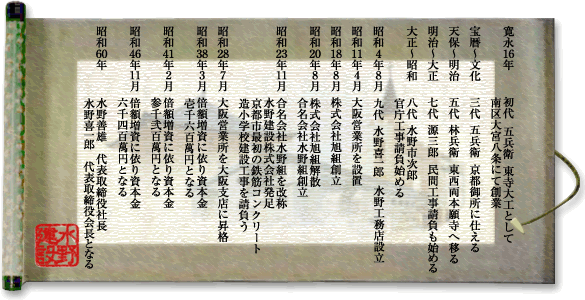 寛永16年 初代 五兵衛 東寺大工として
南区大宮八条にて創業
宝暦～文化 三代 五兵衛 京都御所に仕える
天保～明治 五代 林兵衛 東西両本願寺へ移る
明治～大正 七代 源三郎 民間工事請負も始める
大正～昭和 八代 水野市次郎
官庁工事請負始める
昭和4年8月 九代 水野喜一郎 水野工務店設立
昭和11年4月 大阪営業所を設置
昭和18年8月 株式会社旭組創立
昭和20年8月 株式会社旭組解散
合名会社水野組創立
昭和23年11月 合名会社水野組を改称
水野建設株式会社発足
京都市最初の鉄筋コンクリート
造小学校建設工事を請負う
昭和28年7月 大阪営業所を大阪支店に昇格
昭和38年3月 倍額増資に依り資本金
壱千六百萬円となる
昭和41年2月 倍額増資に依り資本金
参千弐百萬円となる
昭和46年11月 倍額増資に依り資本金
六千四百萬円となる
昭和60年 水野善雄 代表取締役社長
水野喜一郎 代表取締役会長となる
水野建設